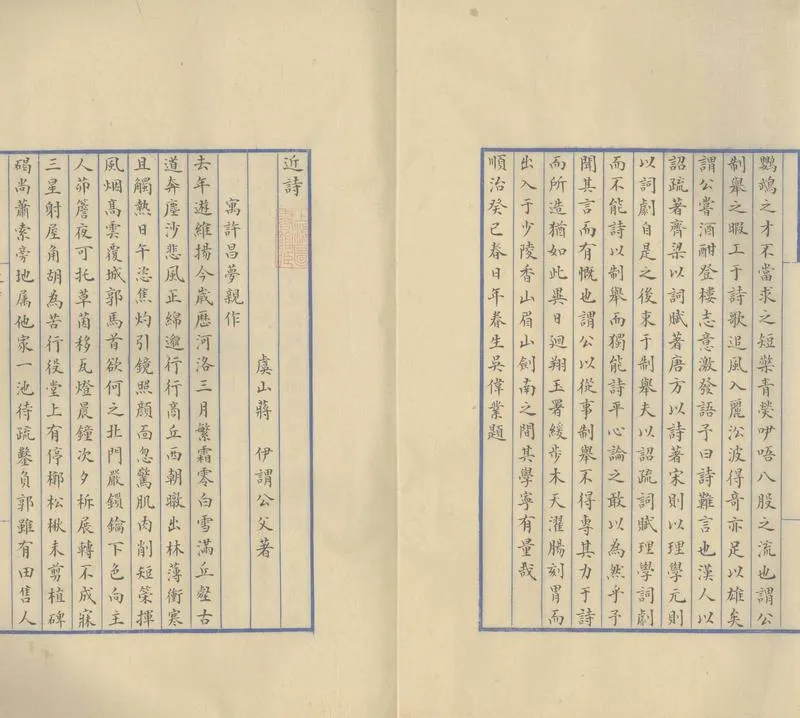 鸚鵡之才不當求之短檠青熒咿唔八股之流也謂公
制舉之暇工于詩歌追風入麗沿波得奇亦足以雄矣
謂公嘗酒酣登樓志意激發語予曰詩難言也漢人以
詔疏著齊梁以詞賦著唐方以詩著宋則以理學元則
以詞劇自是之後束于制舉夫以詔疏詞賦理學詞劇
而不能詩以制舉而獨能詩乎心論之敢以為然乎予
聞其言而有慨也謂公以從事制舉不得專其力于詩
而所造猶如此異日迴翔玉署緩步木天濯腸刻胃而
出入于少陵香山眉山劍南之間其學寧有量哉
順治癸巳春日年眷生吳偉業題
近詩
虞山蔣伊謂公父著
寓許昌夢親作
去年遊維揚今歲歷河洛三月繁霜零白雪滿丘壑古
道奔塵沙悲風正綿邈行行高丘西朝暾出林薄衝寒
且觸熱日午恣焦灼引鏡照顏面忽驚肌肉削短策揮
風烟高雲覆城郭馬首欲何之北門嚴鎖鑰下色向主
人茆簷夜可托草菌移瓦燈晨鐘次夕柝展轉不成寐
三星射屋角胡為苦行役堂上有停槨松楸未剪植碑
碣尚蕭索旁地屬他家一池待疏鑿負郭雖有田售人